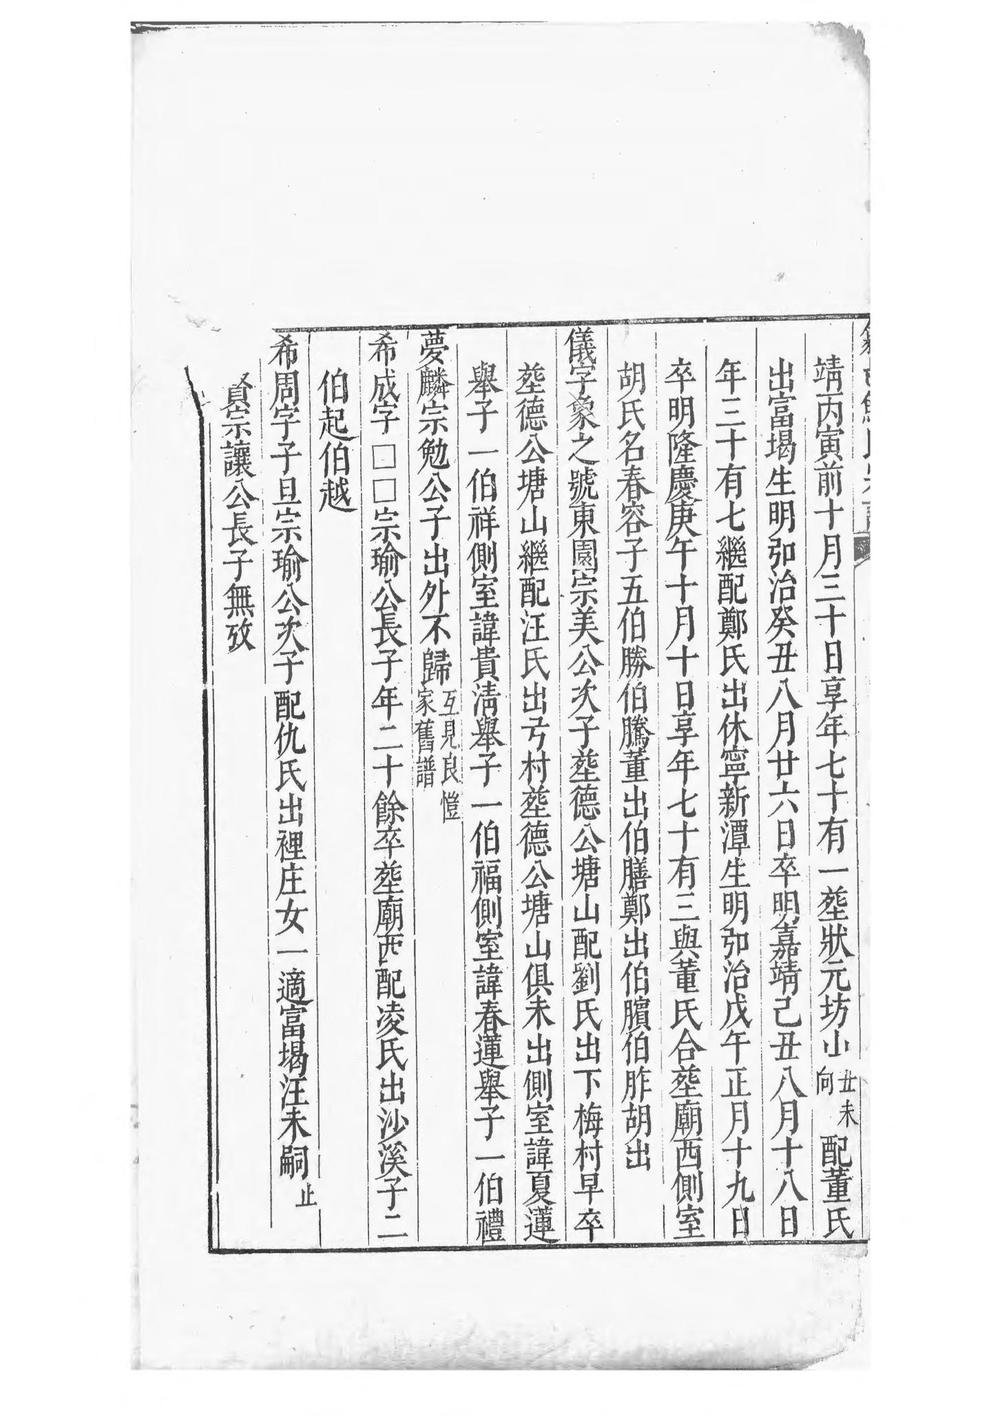 靖丙寅前十月三十日享年七十有一塟狀元坊山丑未向配董氏
出富堨生明弘治癸丑八月廿六日卒明嘉靖己丑八月十八日
年三十有七繼配鄭氏出休寧新潭生明弘治戊午正月十九日
卒明隆慶庚午十月十日享年七十有三與董氏合塟廟西側室
胡氏名春容子五伯勝伯騰董出伯膳鄭出伯臏伯胙胡出
儀字象之號東園宗美公次子塟德公塘山配劉氏出下梅村早卒
塟德公塘山繼配汪氏出竒村塟德公塘山俱未出側室諱夏蓮
舉子一伯祥側室諱貴淸舉子一伯福側室諱春蓮舉子一伯禮
夢麟宗勉公子出外不歸互見良愷家舊譜
希成字□□宗瑜公長子年二十餘卒塟廟西配凌氏出沙溪子二
伯起伯越
希周字子旦宗瑜公次子配仇氏出裡庄女一適富堨汪未嗣止
員宗讓公長子無攷